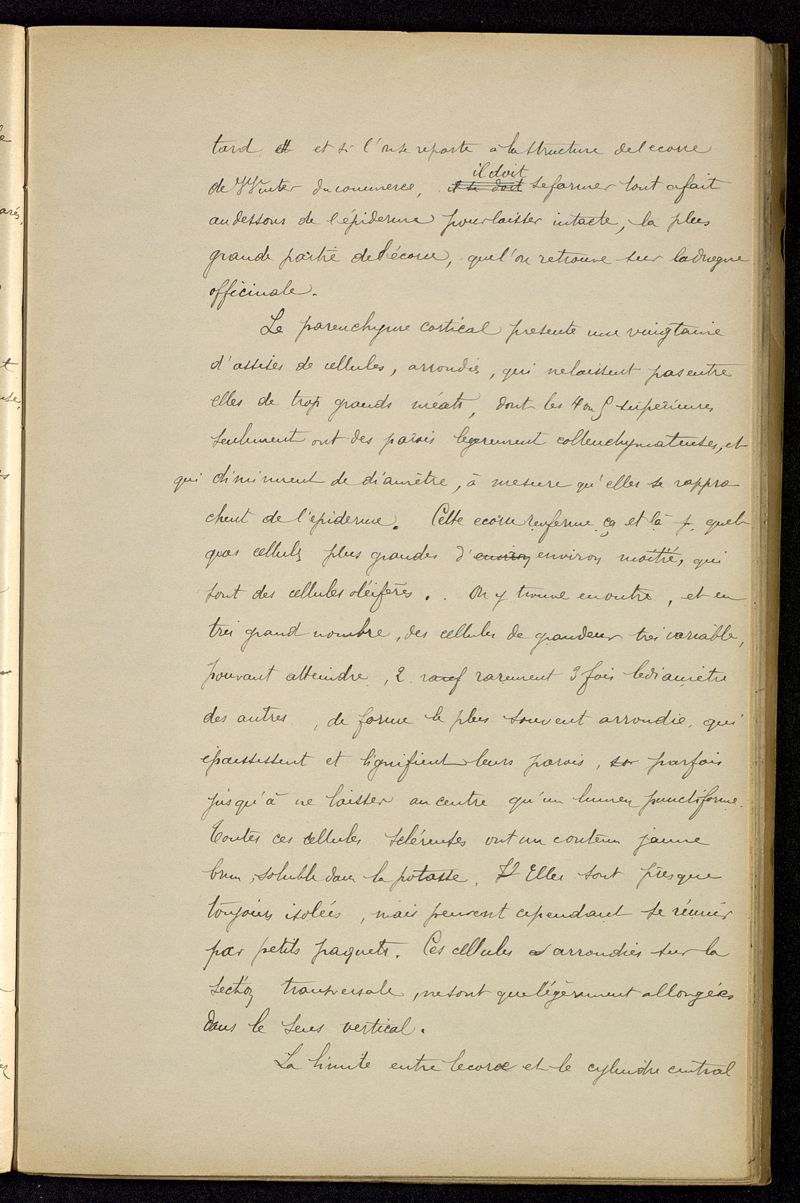 tard et et si l'on se reporte à la structure de l'ecorce
de Winter du commerce, il se doit il doit se former tout a fait
au dessous de l'épiderme pour laisser intacte, la plus
grande partie de l'écorce, que l'on retrouve sur la drogue
officinale.
Le parenchyme cortical presente une vingtaine
d'assises de cellules, arrondies, qui ne laissent pas entre
elles de trop grands méats, dont les 4 ou 5 superieures
seulement ont des parois legerement collenchymateuses, et
qui diminuent de diamètre, à mesure qu'elles se rappro
chent de l'epiderme. Cette ecorce renferme ça et là quel
ques cellules plus grandes d'environ environ moitié, qui
sont des cellules oléifères. On y trouve en outre, et en
tres grand nombre, des cellules de grandeur tres variable,
pouvant atteindre, 2 raref rarement 3 fois le diamètre
des autres, de forme le plus souvent arrondie, qui
épaississent et lignifient leurs parois, parfois
jusqu'à ne laisser au centre qu'un lumen punctiforme.
Toutes ces cellules scléreuses ont un contenu jaune
brun, soluble dans la potasse. Elles sont presque
toujours isolées, mais peuvent cependant se réunir
par petits paquets. Ces cellules arrondies sur la
section transversale, ne sont que légèrement allongées
dans le sens vertical.
La limite entre l'ecorce et le cylindre central